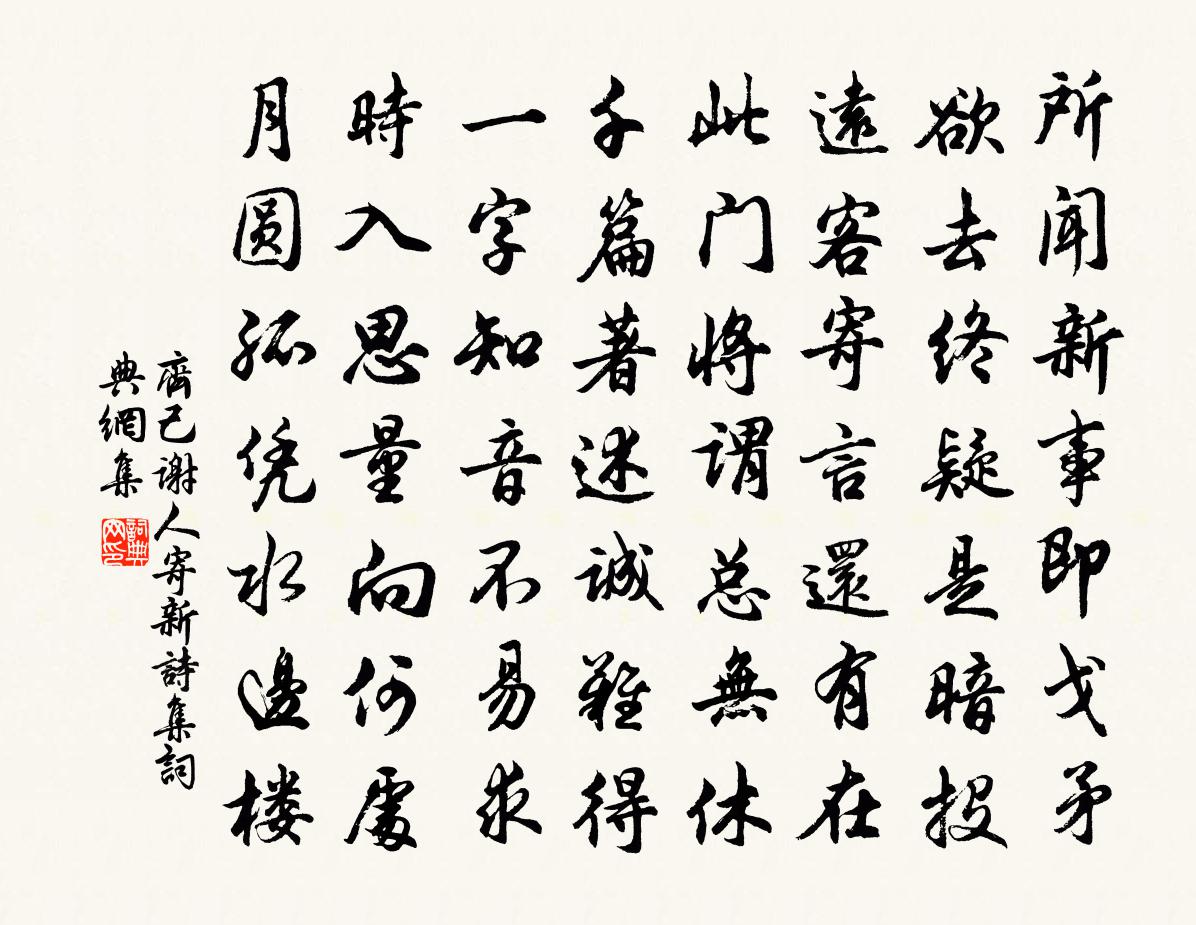 所闻新事即戈矛
欲去终疑是暗投
遠客寄言還有在
此门将谓总無休
千篇著述诚難得
一字知音不易求
時入思量向何處
月圆孤凭水邊楼
齊己谢人寄新詩集詞
典網集
詞典网印